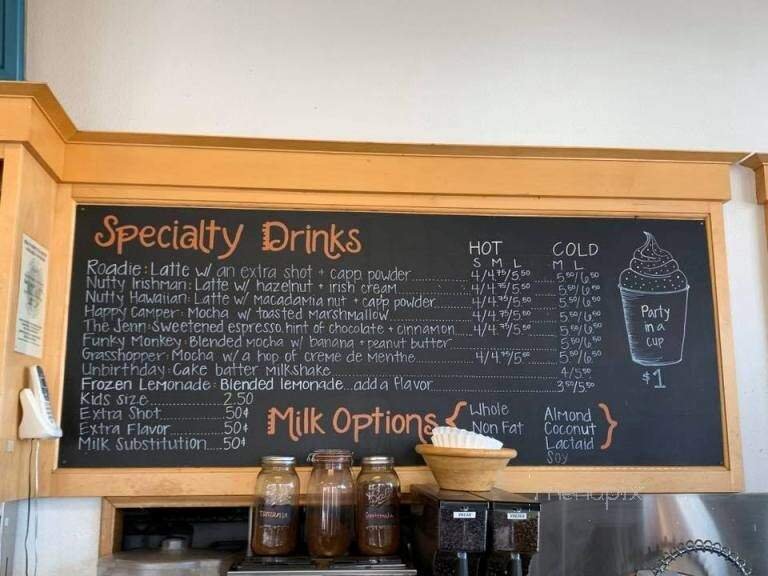 Specialty Drinks
HOT COLD
S M L M L
Roadie: Latte w/ an extra shot + capp. powder 4/4.75/5.50 5.50/6.50
Nutty Irishman: Latte w/ hazelnut + irish cream 4/4.75/5.50 5.50/6.50
Nutty Hawaiian: Latte w/ Macadamia nut + capp powder 4/4.75/5.50 5.50/6.50
Happy Camper: Mocha w/ toasted Marshmallow 4/4.75/5.50 5.50/6.50
The Jenn: Sweetened espresso, hint of chocolate + cinnamon 4/4.75/5.50 5.50/6.50
Funky Monkey: Blended mocha w/ banana + peanut butter 5.50/6.50
Grasshopper: Mocha w/ a hop of creme de menthe 4/4.75/5.50 5.50/6.50
Unbirthday: Cake batter milkshake 4/5.50
Frozen Lemonade: Blended lemonade...add a flavor 3.50/5.50
Kids size 2.50
Extra Shot 50¢
Extra Flavor 50¢
Milk Substitution 50¢
Milk Options { Whole
Non Fat
Almond
Coconut
Lactaid
Soy }
Party
in a
cup
$1